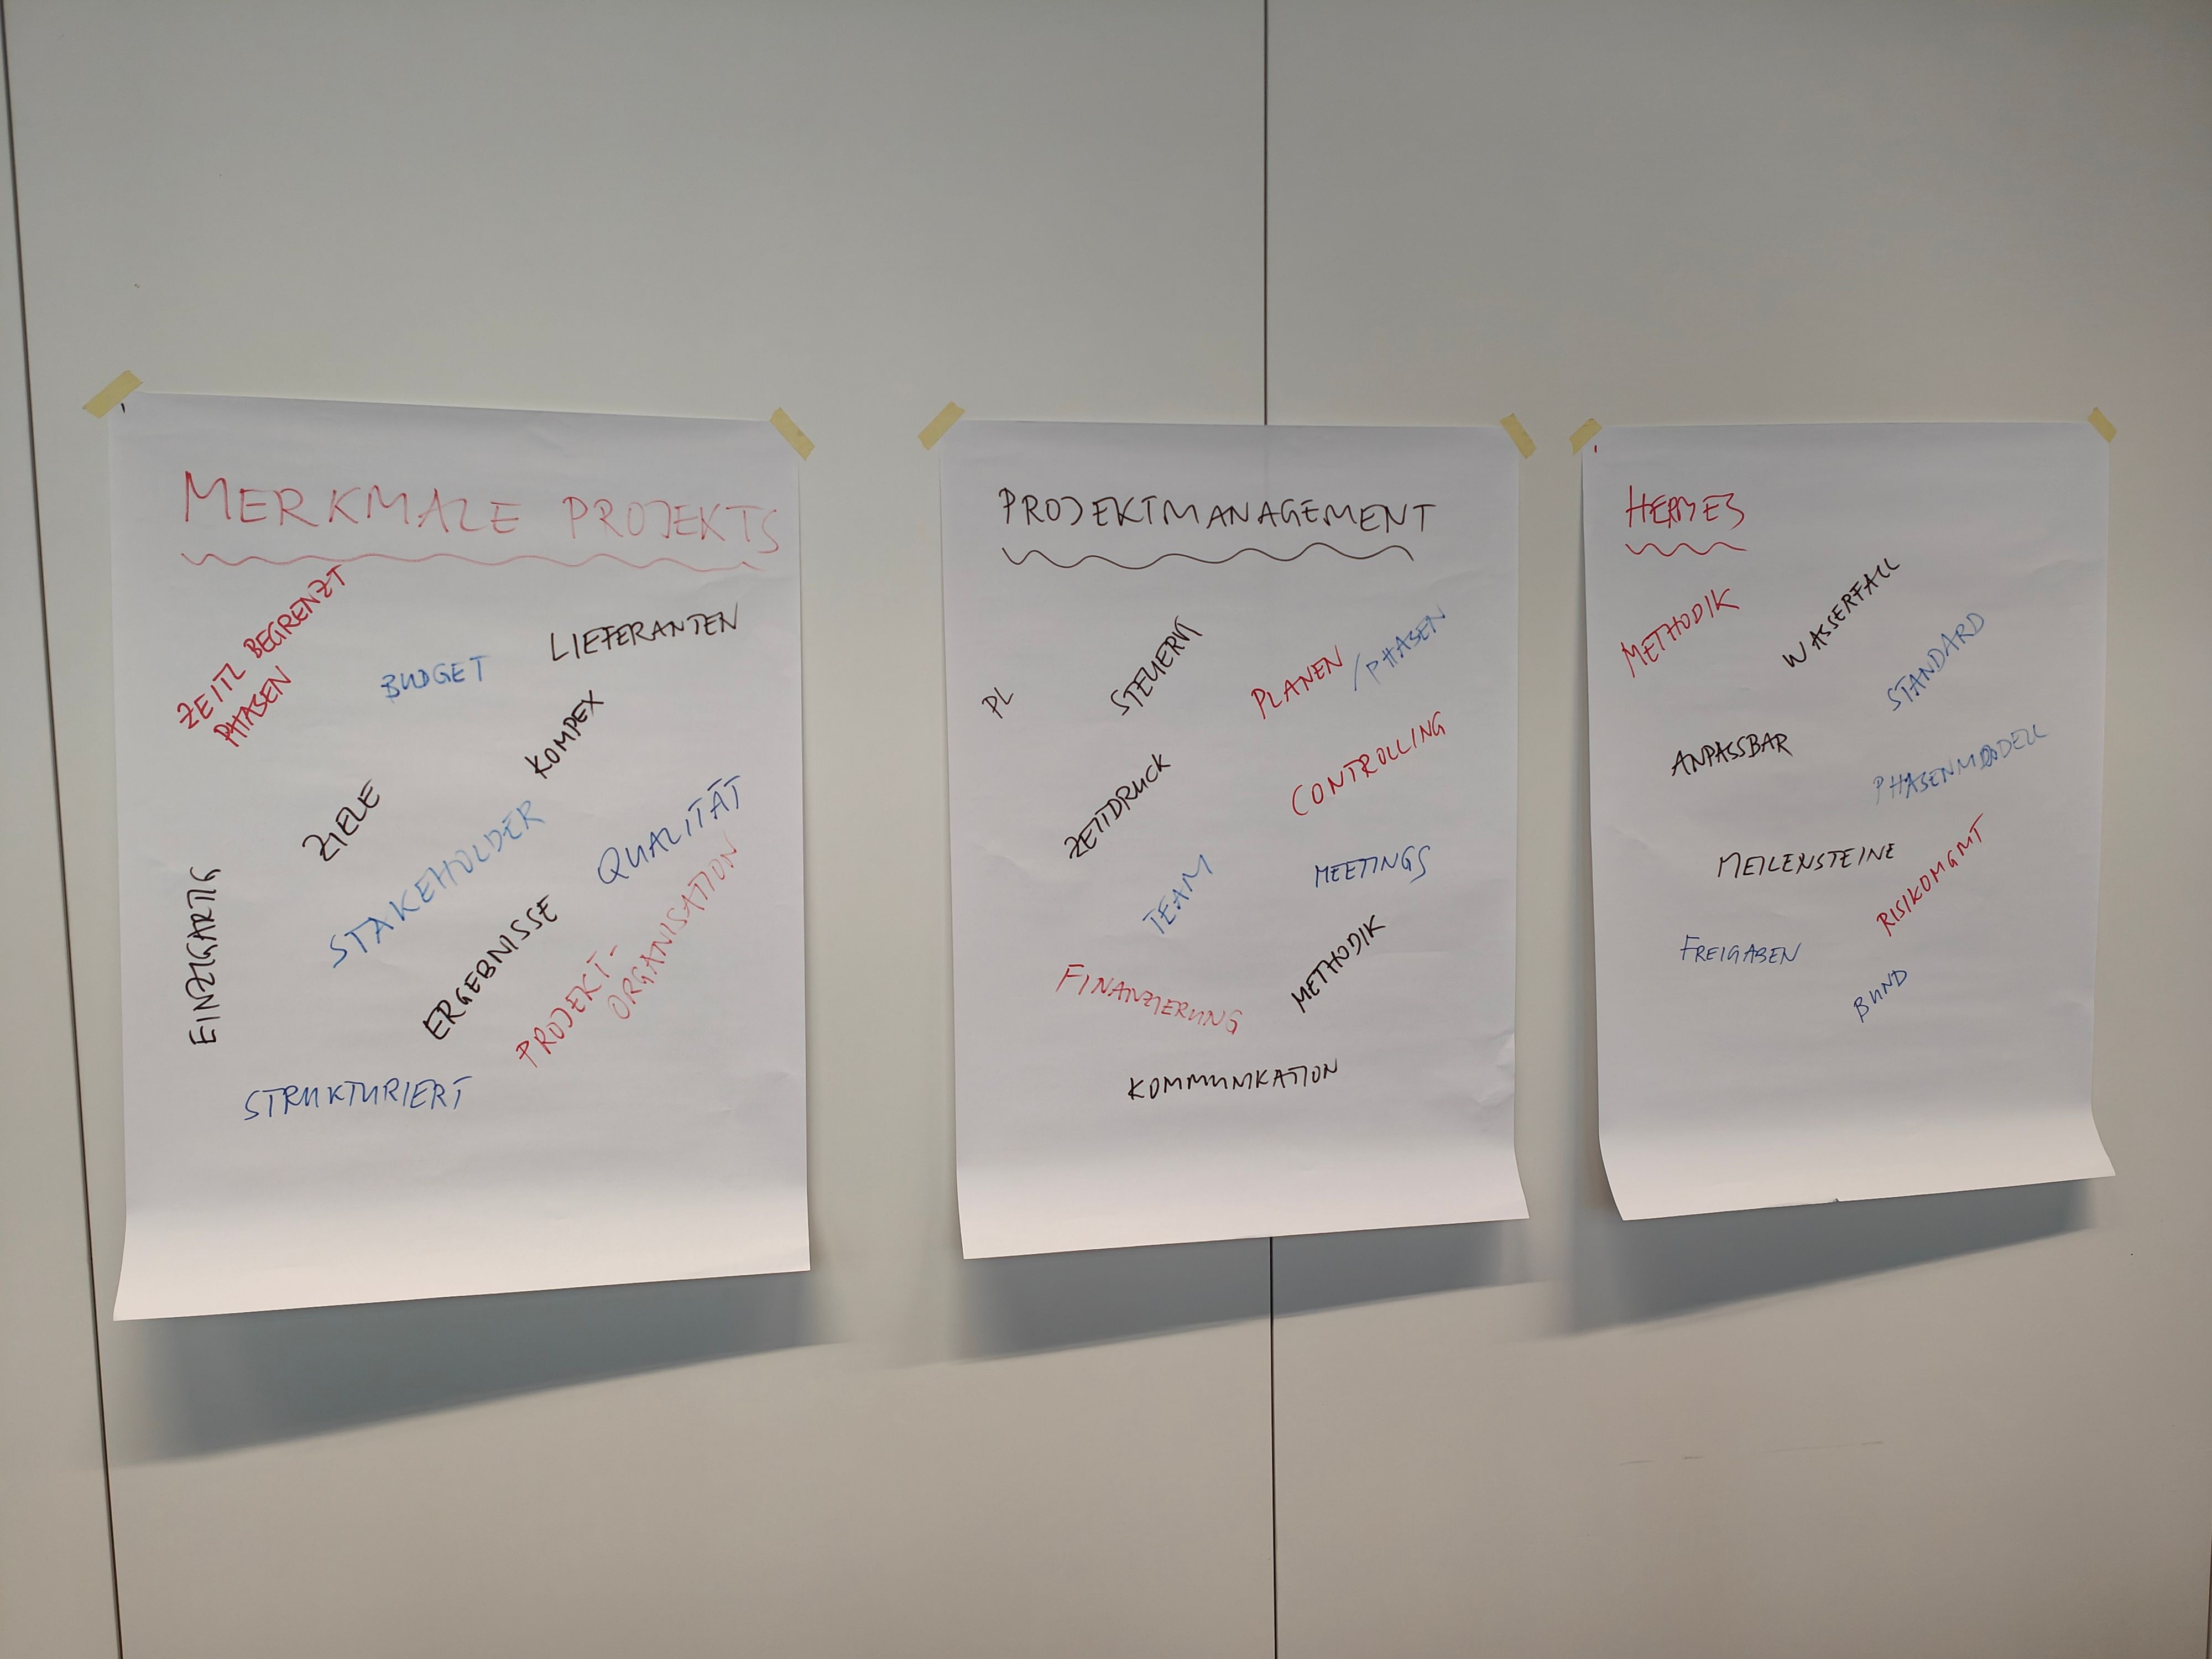 MERKMALE PROJEKTS
ZEITL BEGRENZT
PHASEN
BUDGET
LIEFERANTEN
KOMPEX
ZIELE
STAKEHOLDER
QUALITÄT
EINZIGARTIG
ERGEBNISSE
PROJEKT-
ORGANISATION
STRUKTURIERT
PROJEKTMANAGEMENT
PL
STEUERN
PLANEN / PHASEN
ZEITDRUCK
CONTROLLING
TEAM
MEETINGS
FINANZIERUNG
METHODIK
KOMMUNIKATION
HERMES
METHODIK
WASSERFALL
STANDARD
ANPASSBAR
PHASENMODELL
MEILENSTEINE
RISIKOMGMT
FREIGABEN
BUND